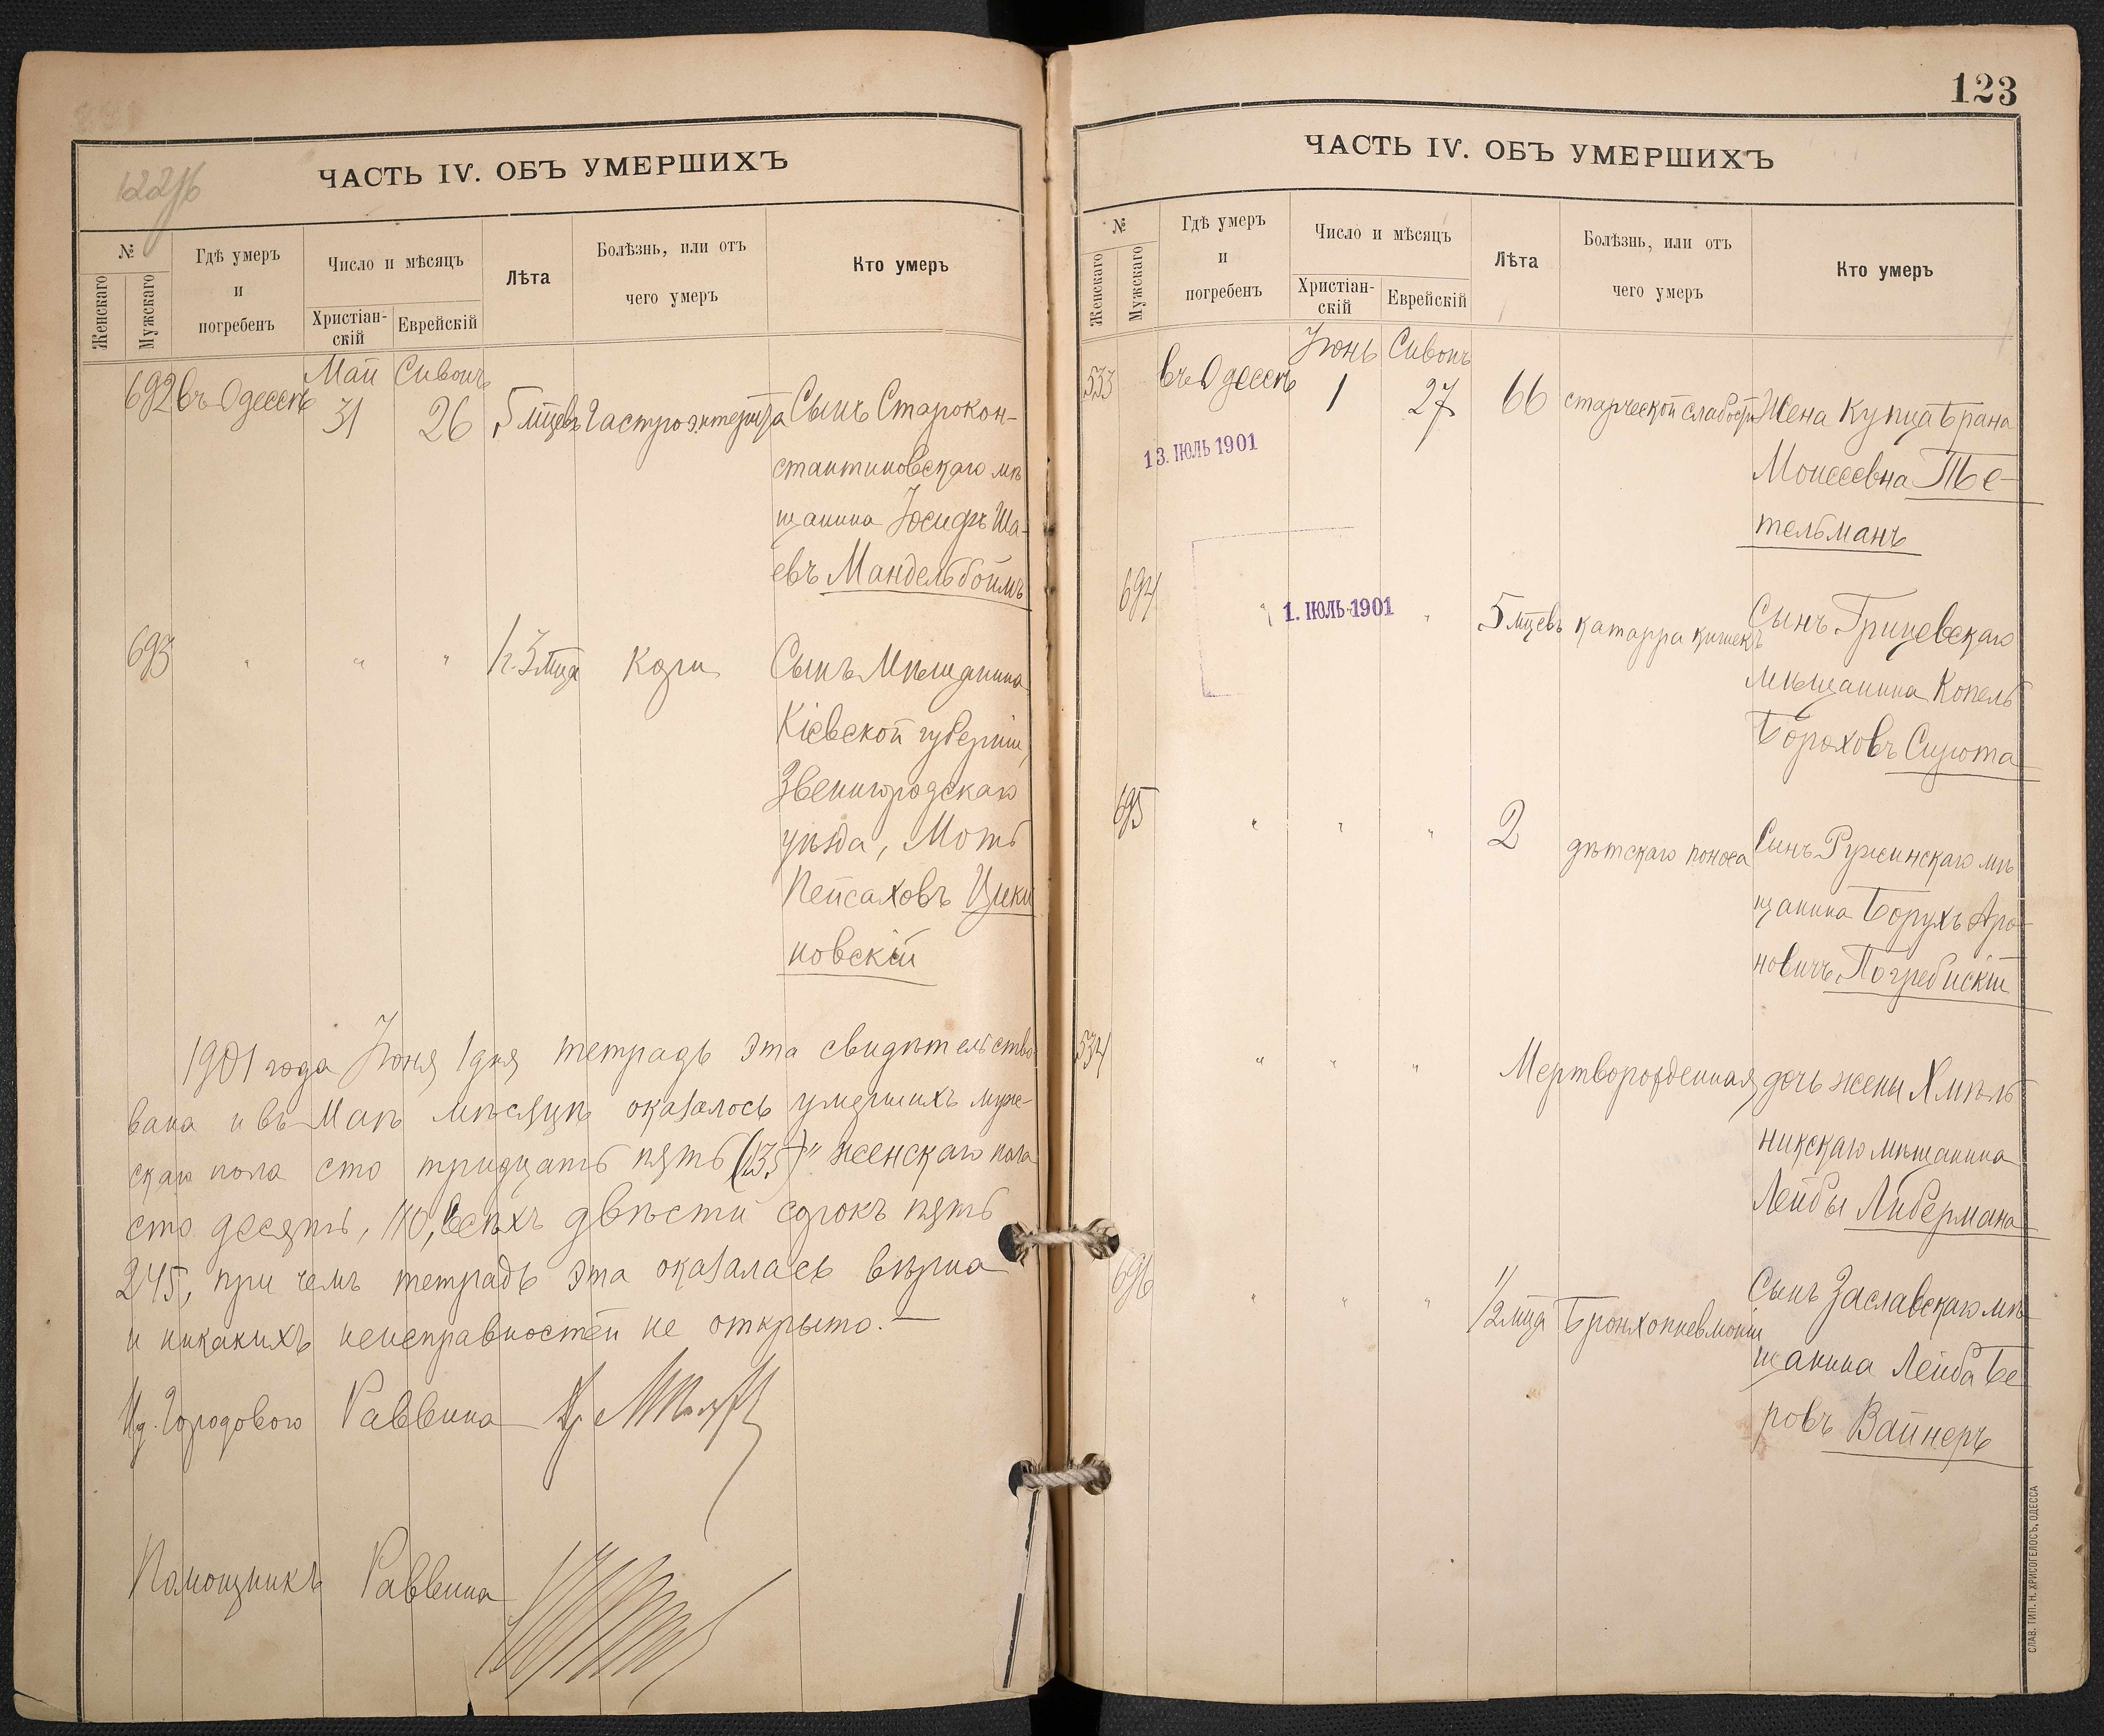 122 об
ЧАСТЬ IV. ОБЪ УМЕРШИХЪ
№
Женскаго
Мужскаго
Гдѣ умеръ
и
погребенъ
Число и мѣсяцъ
Христіан-
скій
Еврейскій
Лѣта
Болѣзнь, или отъ
чего умеръ
Кто умеръ
Май Сивонъ
692 въ Одессѣ 31 26 5 мцевъ Гастроэнтерита Сынъ Старокон-
стантиновскаго мѣ
щанина Іосифъ Ша-
евъ Мандельбоймъ
693 " " " 1 г. 3 мца Кори Сынъ Мѣщанина
Кіевской губерніи,
Звенигородскаго
уѣзда, Моть
Пейсаховъ
новскій
1901 года Іюня 1 дня тетрадь эта свидѣтельство
вана и въ Маѣ мѣсяцѣ оказалось умершихъ муже-
скаго пола сто тридцать пять (135) " женскаго пола
сто десять, 110, всѣхъ двѣсти сорокъ пять
245, при чемъ тетрадь эта оказалась вѣрна
и никакихъ неисправностей не открыто. —
Ид. Городового Раввина
Помощникъ Раввина
123
ЧАСТЬ IV. ОБЪ УМЕРШИХЪ
№
Женскаго
Мужскаго
Гдѣ умеръ
и
погребенъ
Число и мѣсяцъ
Христіан-
скій
Еврейскій
Лѣта
Болѣзнь, или отъ
чего умеръ
Кто умеръ
Іюнь Сивонъ
533 въ Одессѣ 1 27 66 старческой слабости Жена Купца Брана
13. ІЮЛЬ 1901
Моисеевна Те-
тельманъ
694 " 1. ІЮЛЬ 1901 " 5 мцевъ катарра кишекъ Сынъ Грицевскаго
мѣщанина Копель
Бороховъ Сирота
695 " " " 2 дѣтскаго поноса Сынъ Ружинскаго мѣ
щанина Борухъ Аро-
новичъ Погребискій
534 " " " Мертворожденная дочь жены Хмѣль
никскаго мѣщанина
Лейбы Либермана
696 " " " 1/2 мца Бронхопневмоніи Сынъ Заславскаго мѣ-
щанина Лейба Бе
ровъ Вайнеръ
СЛАВ. ТИП. Н. ХРИСОГЕЛОСЪ, ОДЕССА